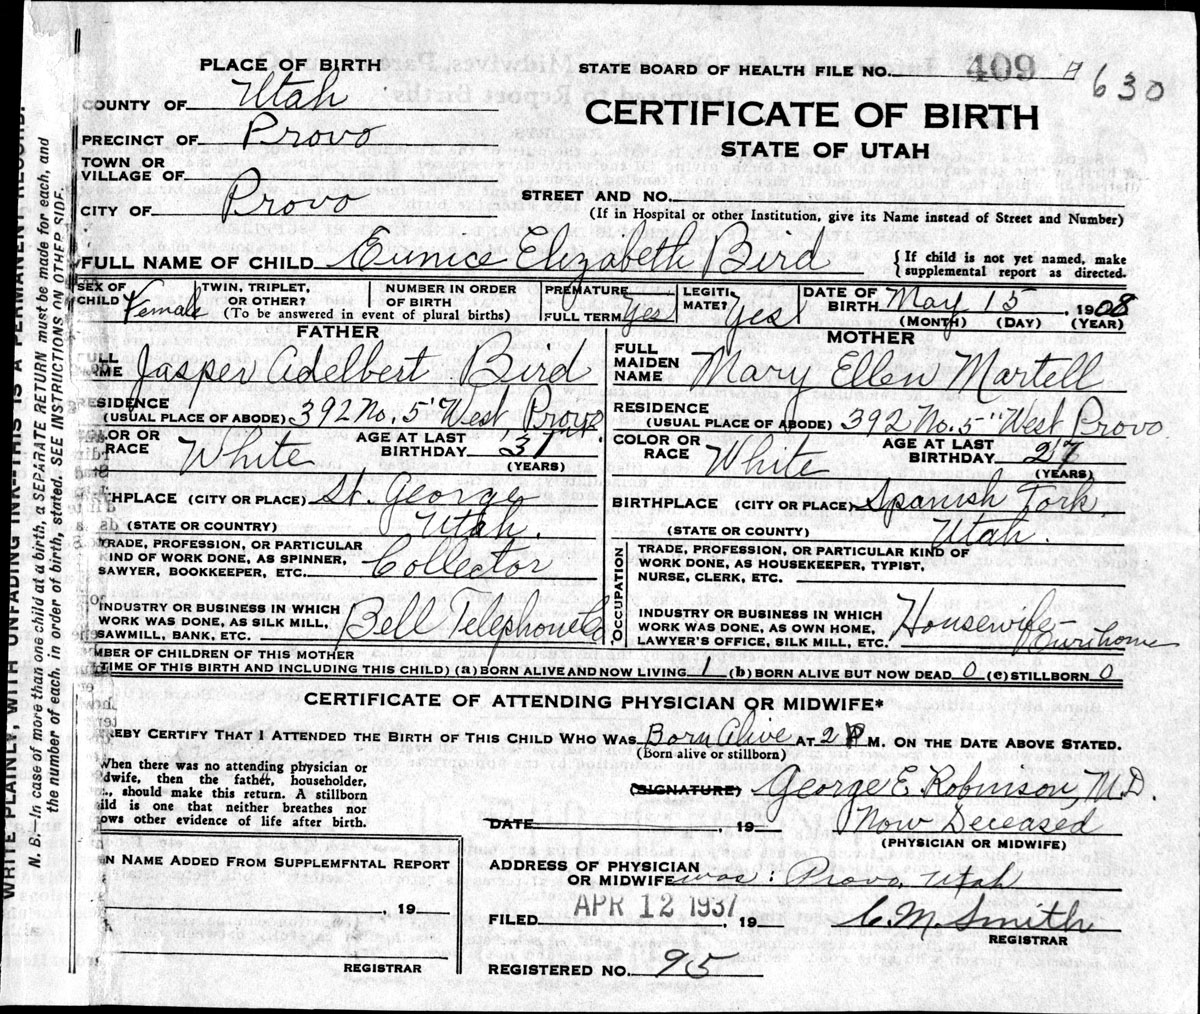 PLACE OF BIRTH
COUNTY OF Utah
PRECINCT OF Provo
TOWN OR
VILLAGE OF
CITY OF Provo
STATE BOARD OF HEALTH FILE NO. 409 630
CERTIFICATE OF BIRTH
STATE OF UTAH
STREET AND NO.
(If in Hospital or other Institution, give its Name instead of Street and Number)
FULL NAME OF CHILD Eunice Elizabeth Bird { If child is not yet named, make
supplemental report as directed.
SEX OF
CHILD Female
TWIN, TRIPLET,
OR OTHER?
NUMBER IN ORDER
OF BIRTH
(To be answered in event of plural births)
PREMATURE
FULL TERM Yes
LEGITI-
MATE? Yes
DATE OF
BIRTH May 15, 1908
(MONTH) (DAY) (YEAR)
FATHER
FULL
NAME Jasper Adelbert Bird
RESIDENCE
(USUAL PLACE OF ABODE) 392 No. 5" West, Provo
COLOR OR
RACE White
AGE AT LAST
BIRTHDAY 31
(YEARS)
THPLACE (CITY OR PLACE) St. George
(STATE OR COUNTRY) Utah.
TRADE, PROFESSION, OR PARTICULAR
KIND OF WORK DONE, AS SPINNER,
SAWYER, BOOKKEEPER, ETC. Collector
INDUSTRY OR BUSINESS IN WHICH
WORK WAS DONE, AS SILK MILL,
SAWMILL, BANK, ETC. Bell Telephone Co
MOTHER
FULL
MAIDEN
NAME Mary Ellen Martell
RESIDENCE
(USUAL PLACE OF ABODE) 392 No. 5" West Provo
COLOR OR
RACE White
AGE AT LAST
BIRTHDAY 27
(YEARS)
BIRTHPLACE (CITY OR PLACE) Spanish Fork,
(STATE OR COUNTY) Utah.
OCCUPATION
TRADE, PROFESSION, OR PARTICULAR KIND OF
WORK DONE, AS HOUSEKEEPER, TYPIST,
NURSE, CLERK, ETC.
INDUSTRY OR BUSINESS IN WHICH
WORK WAS DONE, AS OWN HOME,
LAWYER'S OFFICE, SILK MILL, ETC. Housewife-
Own home
MBER OF CHILDREN OF THIS MOTHER
TIME OF THIS BIRTH AND INCLUDING THIS CHILD) (a) BORN ALIVE AND NOW LIVING 1 (b) BORN ALIVE BUT NOW DEAD 0 (c) STILLBORN 0
CERTIFICATE OF ATTENDING PHYSICIAN OR MIDWIFE*
REBY CERTIFY THAT I ATTENDED THE BIRTH OF THIS CHILD WHO WAS Born Alive AT 2 P M. ON THE DATE ABOVE STATED.
(Born alive or stillborn)
When there was no attending physician or
dwife, then the father, householder,
., should make this return. A stillborn
ild is one that neither breathes nor
ows other evidence of life after birth.
(SIGNATURE) George E. Robinson, M.D.
DATE , 19 Now Deceased
(PHYSICIAN OR MIDWIFE)
ADDRESS OF PHYSICIAN
OR MIDWIFE was: Provo, Utah
FILED APR 12 1937, 19 C. M. Smith
REGISTRAR
REGISTERED NO. 95
N NAME ADDED FROM SUPPLEMENTAL REPORT
, 19
REGISTRAR
WRITE PLAINLY, WITH UNFADING INK—THIS IS A PERMANENT RECORD.
N. B.—In case of more than one child at a birth, a SEPARATE RETURN must be made for each, and
the number of each, in order of birth, stated. SEE INSTRUCTIONS ON OTHER SIDE.